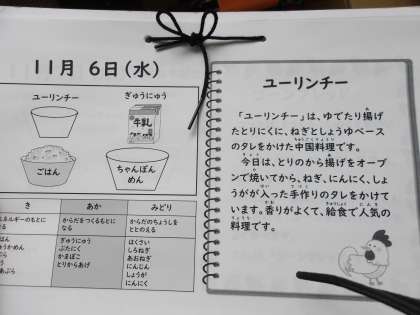 11月 6日(水)
ユーリンチー
ぎゅうにゅう
牛乳
ごはん
ちゃんぽん
めん
き
あか
みどり
からだをつくるもとに
なる
からだのちょうしを
ととのえる
ぎゅうにゅう
ぶたにく
かまぼこ
とりからあげ
はくさい
しろねぎ
あおねぎ
にんじん
しょうが
にんにく
ユーリンチー
「ユーリンチー」は、ゆでたり揚げ
たとりにくに、ねぎとしょうゆベース
のタレをかけた中国料理です。
今日は、とりのから揚げをオーブ
ンで焼いてから、ねぎ、にんにく、しょ
うがが入った手作りのタレをかけて
います。香りがよくて、給食で人気の
料理です。